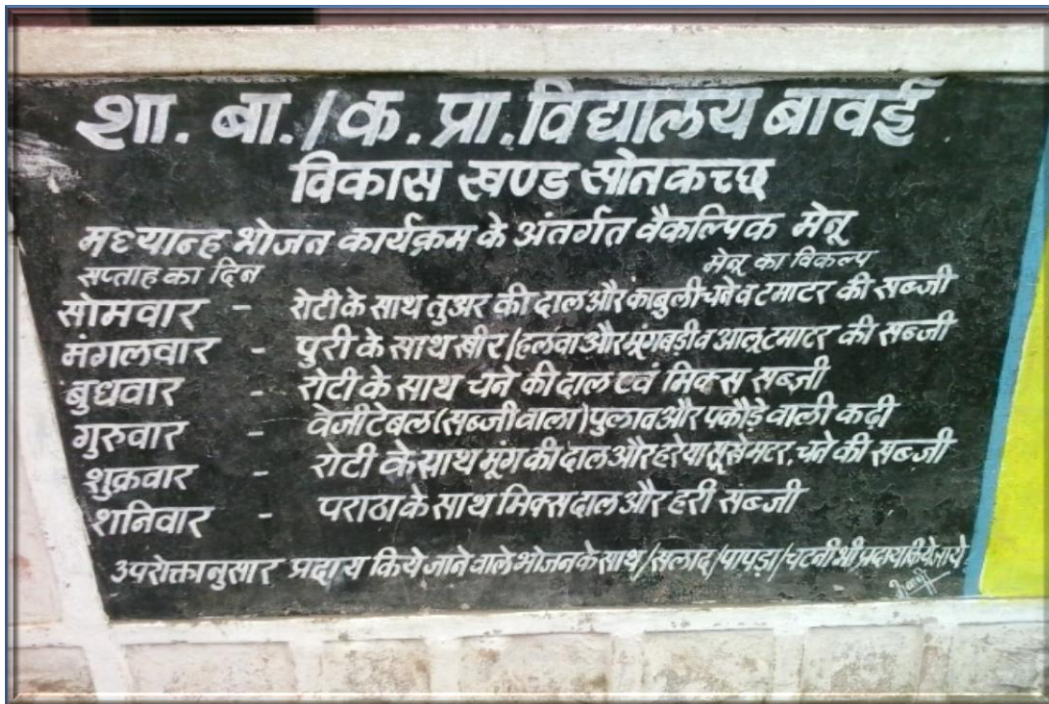 शा. बा./क. प्रा. विद्यालय बावई
विकास खण्ड सोनकच्छ
मध्यान्ह भोजन कार्यक्रम के अंतर्गत वैकल्पिक मेनू
सप्ताह का दिन मेनू का विकल्प
सोमवार - रोटी के साथ तुअर की दाल और काबुली चने व टमाटर की सब्जी
मंगलवार - पुरी के साथ खीर/हलवा और मूंगबडी व आलू टमाटर की सब्जी
बुधवार - रोटी के साथ चने की दाल एवं मिक्स सब्ज़ी
गुरुवार - वेजीटेबल (सब्जी वाला) पुलाव और पकौड़े वाली कढ़ी
शुक्रवार - रोटी के साथ मूंग की दाल और हरे या सूखे मटर, चने की सब्जी
शनिवार - पराठा के साथ मिक्स दाल और हरी सब्जी
उपरोक्तानुसार प्रदाय किये जाने वाले भोजन के साथ/सलाद/पापड़/चटनी भी प्रदाय किये जाये